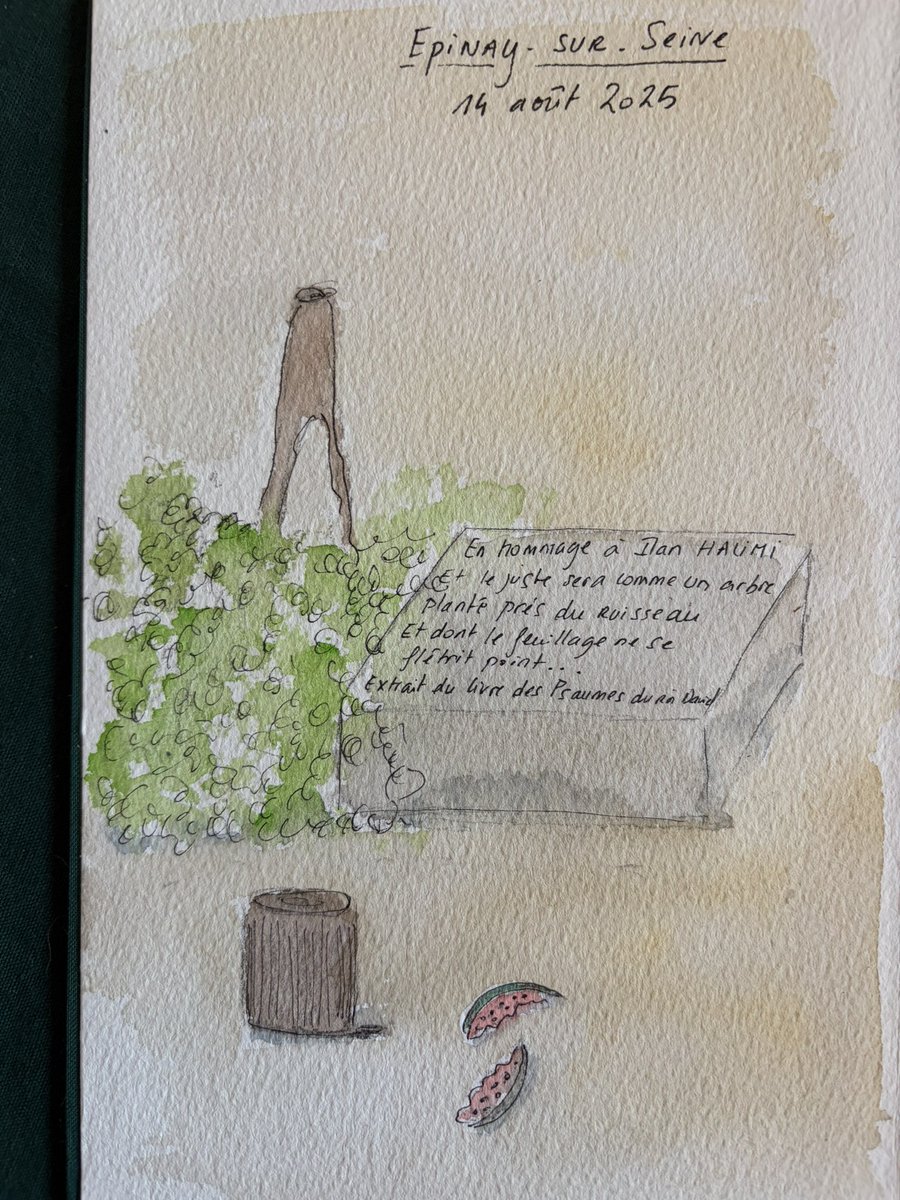 Epinay-sur-Seine
14 août 2025
En hommage à Ilan HALIMI
Et le juste sera comme un arbre
planté près du ruisseau
Et dont le feuillage ne se
flétrit point...
Extrait du livre des Psaumes du roi David